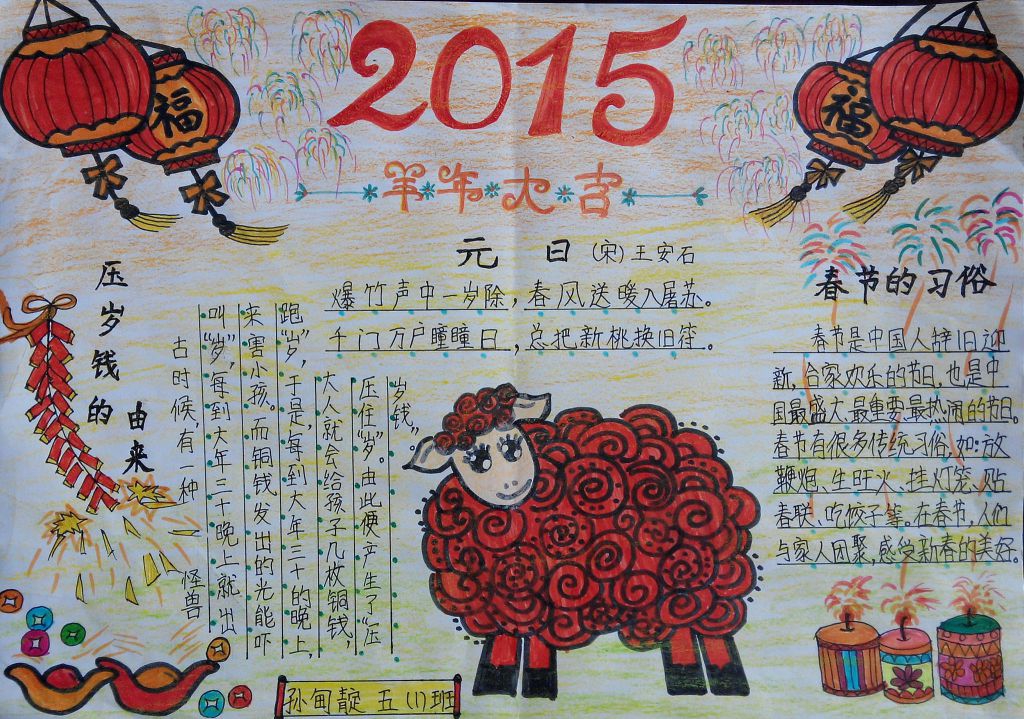 福
福
2015
羊年大吉
元日 (宋) 王安石
爆竹声中一岁除,春风送暖入屠苏。
千门万户瞳瞳日,总把新桃换旧符。
压岁钱的
由来
古时候,有一种怪兽
叫“岁”,每到大年三十晚上就出
来害小孩。而铜钱发出的光能吓
跑“岁”,于是,每到大年三十的晚上,
大人就会给孩子几枚铜钱,
压住“岁”。由此便产生了“压
岁钱”
春节的习俗
春节是中国人辞旧迎
新,合家欢乐的节日,也是中
国最盛大、最重要、最热闹的节日。
春节有很多传统习俗,如:放
鞭炮、生旺火、挂灯笼、贴
春联、吃饺子等。在春节,人们
与家人团聚,感受新春的美好。
孙甸靛 五(1)班